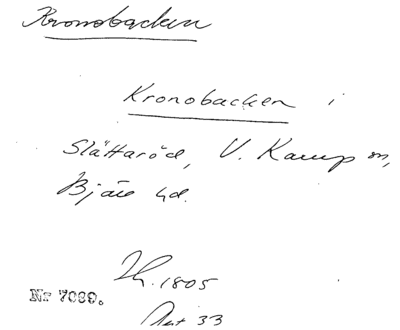 Kronobacken
Kronobacken i
Slättaröd, V. Karup sn,
Bjäre hd.
1805
Nr 7099.
33